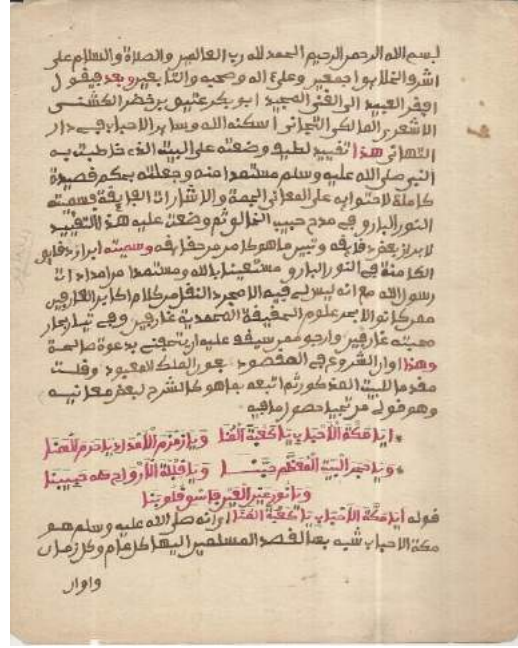 بسم الله الرحمن الرحيم الحمد لله رب العالمين والصلاة والسلام على
اشرف الخلايق اجمعين وعلى اله وصحبه والتابعين وبعد فيقول
افقر العبيد الى الغني المجيد ابو بكر عتيق بن خضر الكشنى
الاشعري المالكي التجاني اسكنه الله وساير الاحباب في دار
التهاني هذا تقييد لطيف وضعته على البيت الذي خاطبت به
النبي صلى الله عليه وسلم مستمدا منه وجعلته بحكم قصيدة
كاملة لاحتوايه على المعاني الجمة والاشارات الفايقة فسميته
النور البارق في مدح حبيب الخالق ثم وضعت عليه هذا التقييد
لابراز بعض دقايقه وتبيين ما هو كامن من حقايقه وسميته ابراز دقايق
الكامنة في النور البارق مستعينا بالله ومستمدا من امدادات
رسول الله مع انه ليس لي فيه الا مجرد النقل من كلام اكابر العارفين
ممن كانوا لابحر علوم الحقيقة المحمدية غارفين وفي تيار بحار
محبته غارقين وارجو ممن سيقف عليه ان يتحفني بدعوة صالحة
وهذا اوان الشروع في المقصود بعون الملك المعبود وقلت
مقدما للبيت المذكور ثم اتبعه بما هو كالشرح لبعض معانيه
وهو قولي من تخيل حصول ما فيه
ايا مكة الاحباب يا كعبة الهنا ويا زمزم الامداد يا حرم المنى
ويا حجر البيت المعظم حبنا ويا قبلة الارواح طه حبيبنا
ويا نور عين العين فاشق قلوبنا
قوله ايا مكة الاحباب يا كعبة الهنا اي انه صلى الله عليه وسلم هو
مكة الاحباب شبه بها لقصد المسلمين اليها كل عام وكل زمان
واوان